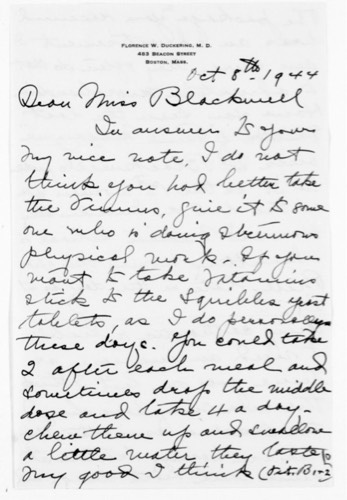 FLORENCE W. DUCKERING, M. D.
453 BEACON STREET
BOSTON, MASS.
Oct 8th, 1944
Dear Miss Blackwell
In answer to your
very nice note, I do not
think you had better take
the Vimms, give it to some
one who is doing strenuous
physical work. If you
want to take vitamins
stick to the Squibbs yeast
tablets, as I do personally
these days. You could take
2 after each meal and
sometimes drop the middle
dose and take 4 a day,
chew them up and swallow
a little water they taste
very good I think (Vit. B 1-2